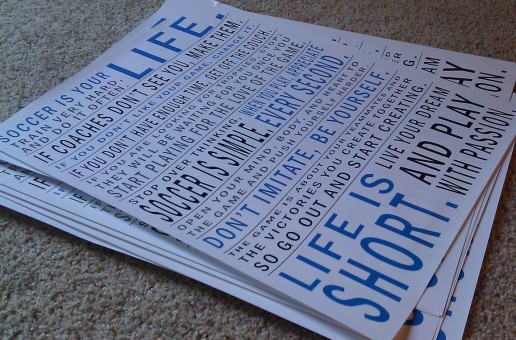 SOCCER IS YOUR
LIFE.
TRAIN VERY HARD
AND DO IT OFTEN.
IF COACHES DON'T SEE YOU, MAKE THEM.
IF YOU DON'T LIKE YOUR GAME, CHANGE IT.
IF YOU DON'T HAVE ENOUGH TIME, GET LIFT TO COACH.
IF YOU ARE LOOKING FOR
THEY WILL BE WAITING FOR YOU ONCE YOU
START PLAYING FOR THE LOVE OF THE GAME.
STOP OVER THINKING,
SOCCER IS SIMPLE.
WHEN YOU PLAY, APPRECIATE
EVERY SECOND
OPEN YOUR MIND, BODY, AND HEART TO
THE GAME, AND PUSH YOURSELF.
DON'T IMITATE BE YOURSELF,
THE GAME IS ABOUT YOUR TEAMMATES, AND
THE VICTORIES YOU CREATE TOGETHER
SO GO OUT AND START CREATING.
LIFE IS
SHORT.
LIVE YOUR DREAM
AND PLAY
WITH PASSION.